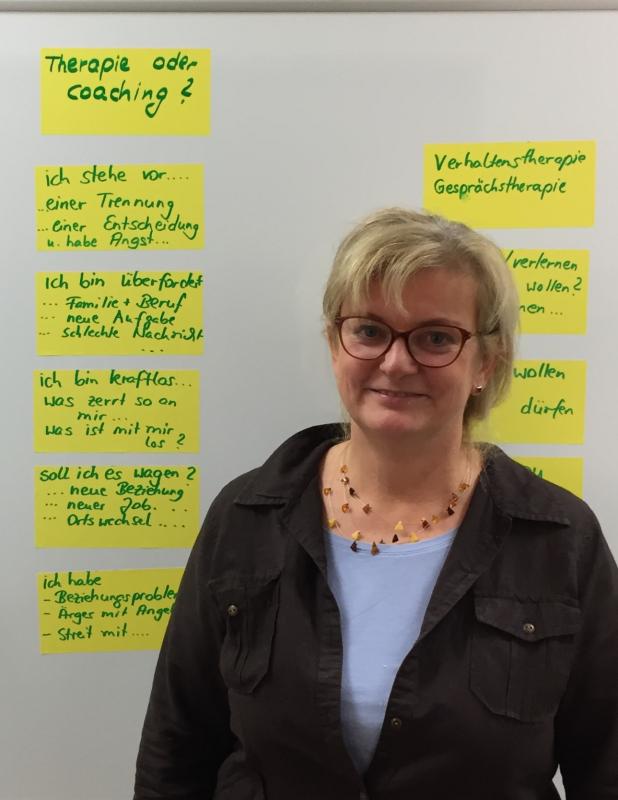 Therapie oder
coaching?
ich stehe vor....
...einer Trennung
...einer Entscheidung
u. habe Angst...
Ich bin überfordet
... Familie + Beruf
... neue Aufgabe
... schlechte Nachricht
...
ich bin kraftlos...
was zerrt so an
mir...
was ist mit mir
los?
soll ich es wagen?
... neue Beziehung
... neuer Job..
... Ortswechsel....
ich habe
- Beziehungsproble
- Ärges mit Ange
- Streit mit....
Verhaltenstherapie
Gesprächstherapie
/verlernen
wollen?
nen...
wollen
dürfen